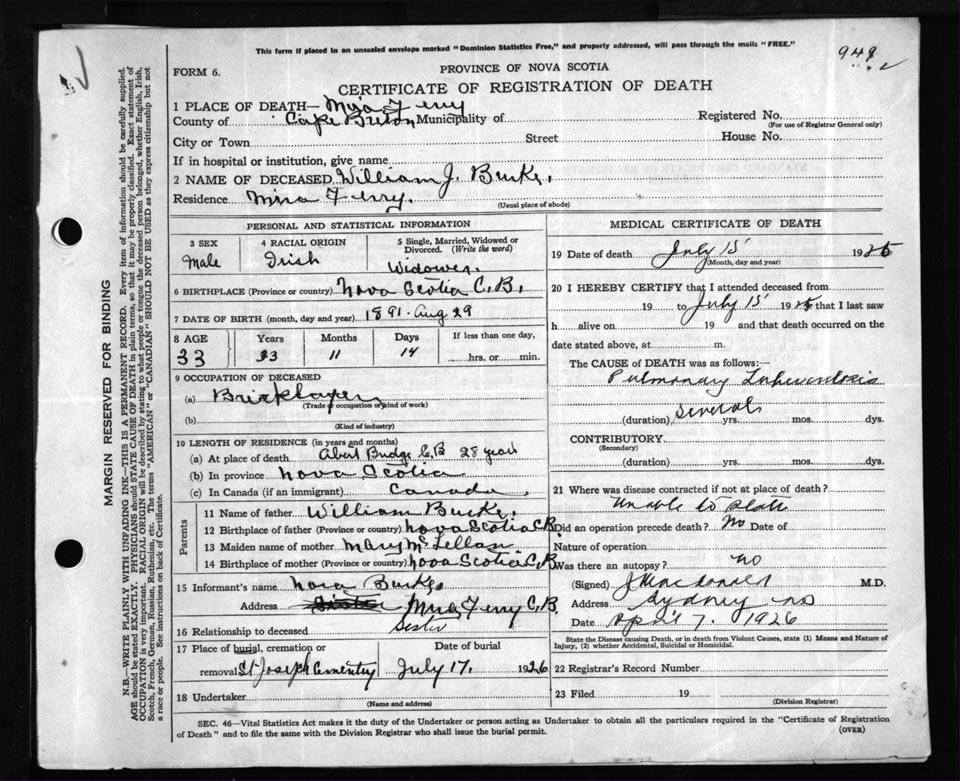 This form if placed in an unsealed envelope marked "Dominion Statistics Free," and properly addressed, will pass through the mails "FREE."
949
FORM 6.
PROVINCE OF NOVA SCOTIA
CERTIFICATE OF REGISTRATION OF DEATH
1 PLACE OF DEATH— Mira Ferry
County of Cape Breton Municipality of Registered No.
(For use of Registrar General only)
City or Town Street House No.
If in hospital or institution, give name
2 NAME OF DECEASED William J. Burke.
Residence Mira Ferry.
(Usual place of abode)
PERSONAL AND STATISTICAL INFORMATION
3 SEX 4 RACIAL ORIGIN 5 Single, Married, Widowed or Divorced. (Write the word)
Male Irish Widower.
6 BIRTHPLACE (Province or country) Nova Scotia C.B.
7 DATE OF BIRTH (month, day and year) 1891 Aug 29
8 AGE Years Months Days If less than one day,
33 33 11 14 hrs. or min.
9 OCCUPATION OF DECEASED
(a) Bricklayer
(Trade or occupation or kind of work)
(b)
(Kind of industry)
10 LENGTH OF RESIDENCE (in years and months)
(a) At place of death Abert Bridge C.B 28 years
(b) In province Nova Scotia
(c) In Canada (if an immigrant) Canada.
Parents
11 Name of father William Burke.
12 Birthplace of father (Province or country) Nova Scotia C.B.
13 Maiden name of mother Mary McLellan
14 Birthplace of mother (Province or country) Nova Scotia C.B.
15 Informant's name Nora Burke
Address Sister Mira Ferry C.B.
16 Relationship to deceased Sister
17 Place of burial, cremation or Date of burial
removal St Joseph Cementry July 17. 1926
18 Undertaker
(Name and address)
MEDICAL CERTIFICATE OF DEATH
19 Date of death July 15 1925
(Month, day and year)
20 I HEREBY CERTIFY that I attended deceased from
19 to July 15 1925 that I last saw
h alive on 19 and that death occurred on the
date stated above, at m.
The CAUSE of DEATH was as follows:—
Pulmonary Tuberculosis
Several
(duration) yrs. mos. dys.
CONTRIBUTORY
(Secondary)
(duration) yrs. mos. dys.
21 Where was disease contracted if not at place of death?
Unable to State
Did an operation precede death? No Date of
Nature of operation
Was there an autopsy? no
(Signed) J MacDonald M.D.
Address Sydney NS
Date April 7. 1926
State the Disease causing Death, or in death from Violent Causes, state (1) Means and Nature of Injury, (2) whether Accidental, Suicidal or Homicidal.
22 Registrar's Record Number
23 Filed 19
(Division Registrar)
SEC. 46—Vital Statistics Act makes it the duty of the Undertaker or person acting as Undertaker to obtain all the particulars required in the "Certificate of Registration
of Death" and to file the same with the Division Registrar who shall issue the burial permit.
(OVER)
MARGIN RESERVED FOR BINDING
N.B.—WRITE PLAINLY WITH UNFADING INK—THIS IS A PERMANENT RECORD. Every item of information should be carefully supplied.
AGE should be stated EXACTLY. PHYSICIANS should STATE CAUSE OF DEATH in plain terms, so that it may be properly classified. Exact statement of
OCCUPATION is very important. RACIAL ORIGIN will be described by stating to what people or tongue the deceased person belonged, whether English, Irish,
Scotch, French, German, Russian, Ruthenian, etc. The terms "AMERICAN" or "CANADIAN" SHOULD NOT BE USED as they express citizenship but not
a race or people. See instructions on back of Certificate.